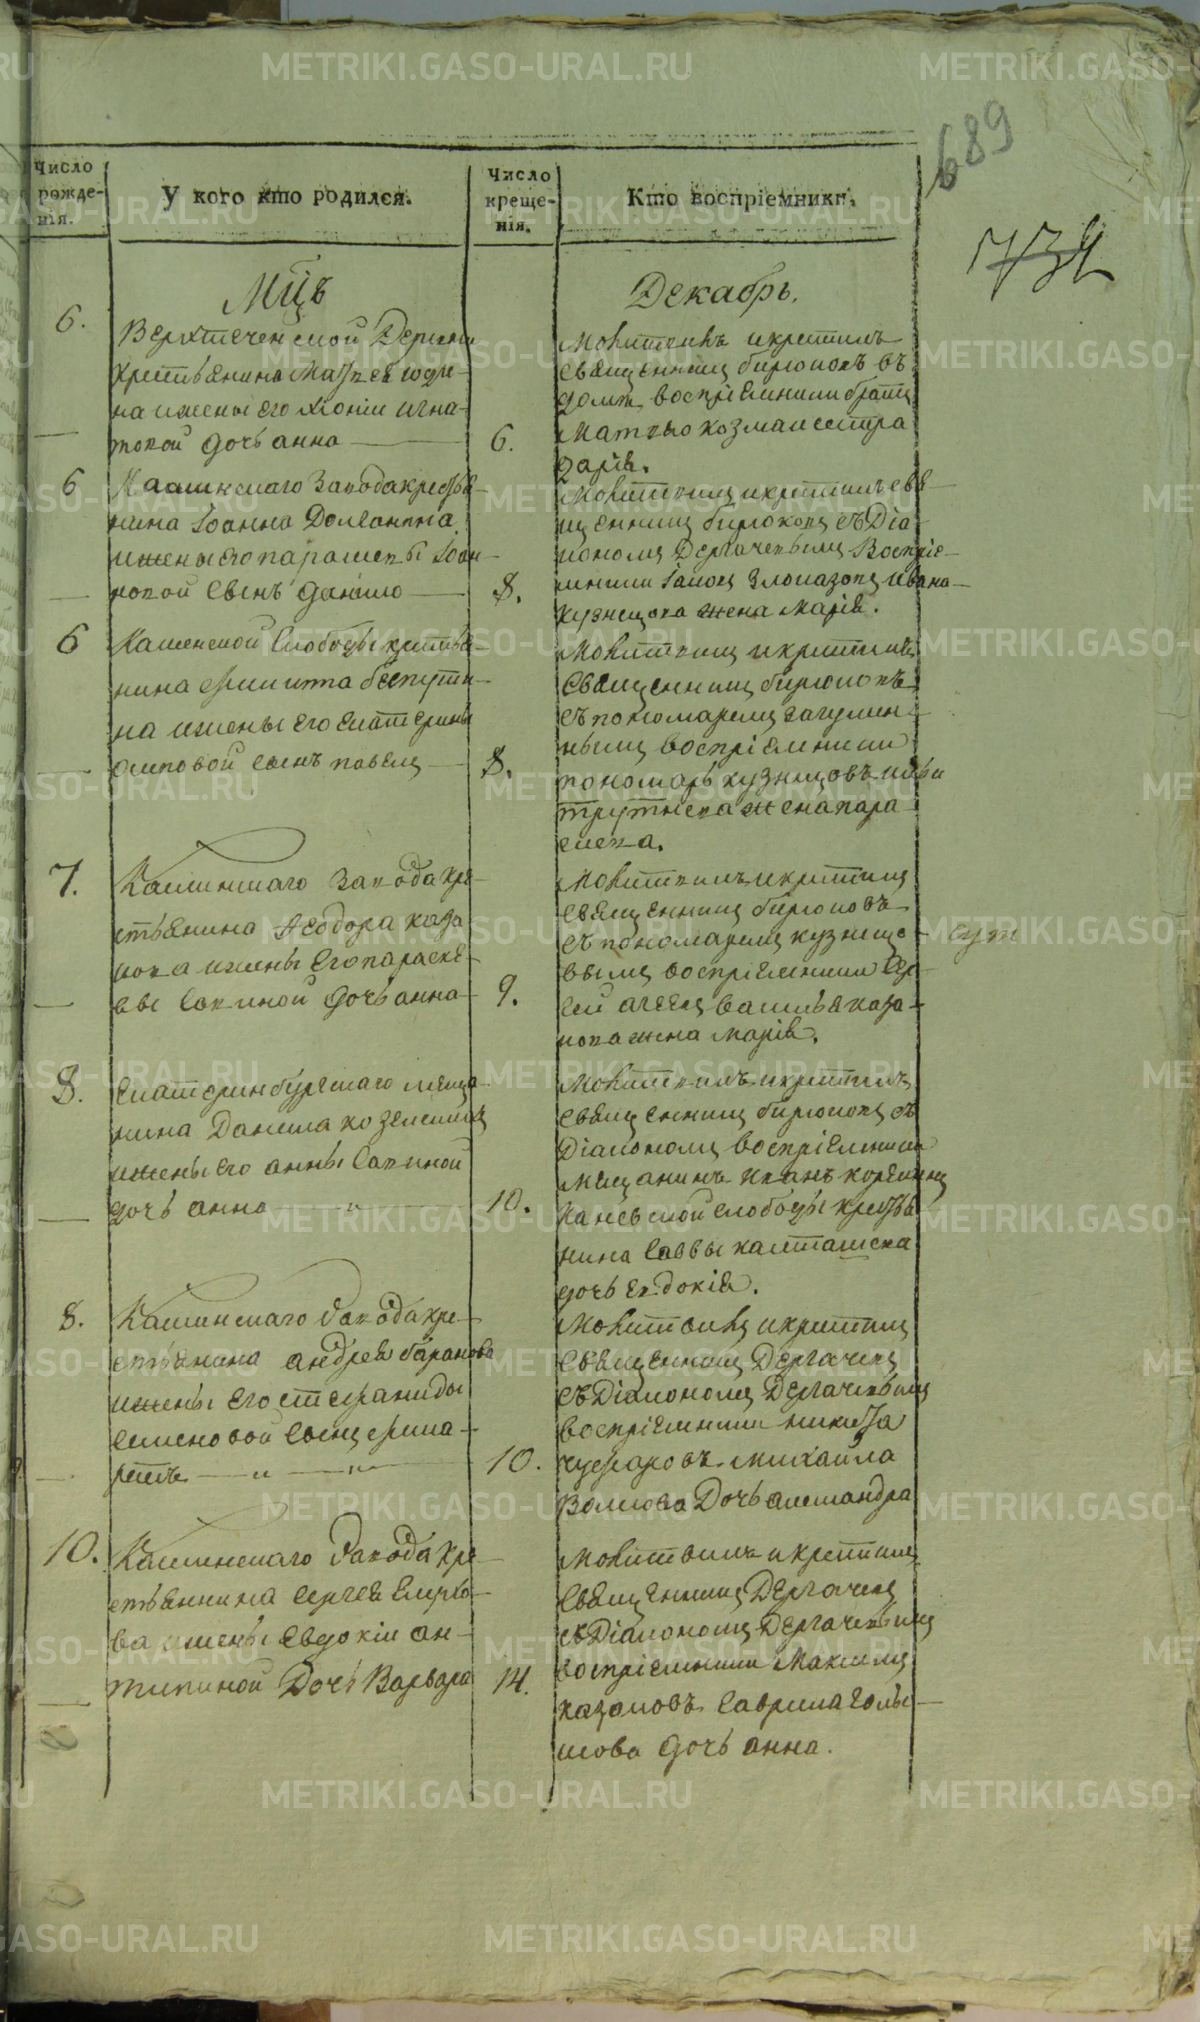 689
732
Число рожде-нія.
У кого кто родился.
Число креще-нія.
Кто воспріемники.
Мцъ
Декабрь.
6.
Верхтеченской Деревни
крестьянина Матвея
на и жены его Хіоніи Игна-
товой дочь анна
6.
Молитвилъ и крестилъ
священникъ бирюковъ въ
доме воспріемники братъ
козма и сестра
дарія.
6
Каслинскаго Завода кресть-
нина Іоанна
и жены его парасковьи Іоан-
новой сынъ данило
8.
Молитвилъ и крестилъ свя-
щенникъ бирюковъ съ Діа-
кономъ Дергачевымъ Воспріе-
мники Іаковъ Злоказовъ ивана
кузнецова жена марія.
6
Каменской слободы крестья-
нина
на и жены его екатерины
осиповой сынъ павелъ
8.
Молитвилъ и крестилъ
священникъ бирюковъ
съ пономаремъ
нымъ воспріемники
пономарь кузнецовъ
трутнева жена пара-
скева.
7.
Каслинскаго завода кре-
стьянина Феодора каза-
кова и жены его параске-
вы Савиной дочь анна
9.
Молитвилъ и крестилъ
священникъ бирюковъ
съ пономаремъ кузнецо-
вымъ воспріемники Сер-
гей агеевъ василья каза-
кова жена марія.
8.
екатеринбургскаго меща-
нина Данила
и жены его анны Савиной
дочь анна
10.
Молитвилъ и крестилъ
священникъ бирюковъ съ
Діакономъ воспріемники
мещанинъ иванъ
слободы крестья-
нина Саввы
дочь евдокія.
8.
Каслинскаго завода кре-
стьянина андрея баранова
и жены его степаниды
семеновой сынъ филა-
ретъ
10.
Молитвилъ и крестилъ
священникъ Дергачевъ
съ Діакономъ Дергачевымъ
воспріемники никита
чуфаровъ михаила
Волкова Дочь александра
10.
Каслинскаго завода кре-
стьянина сергея
ва и жены евдокіи ан-
типиной Дочь Варвара
14.
Молитвилъ и крестилъ
священникъ Дергачевъ
съ Діакономъ Дергачевымъ
воспріемники Максимъ
казаковъ Гаврила голы-
шова дочь анна.
METRIKI.GASO-URAL.RU